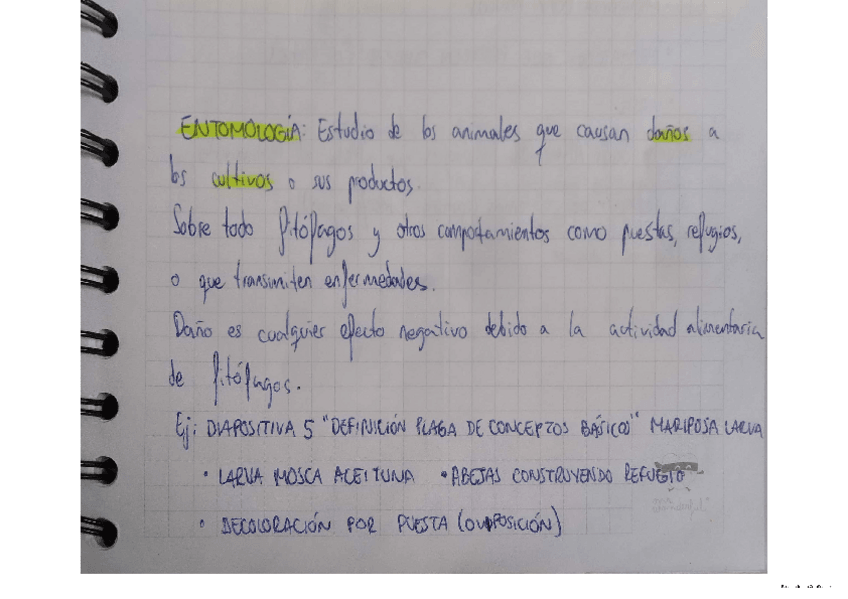 ENTOMOLOGÍA: Estudio de los animales que causan daños a
los cultivos o sus productos.
Sobre todo fitófagos y otros comportamientos como puestas, refugios,
o que transmiten enfermedades.
Daño es cualquier efecto negativo debido a la actividad alimentaria
de fitófagos.
Ej: DIAPOSITIVA 5 "DEFINICIÓN PLAGA DE CONCEPTOS BÁSICOS" MARIPOSA LARVA
• LARVA MOSCA ACEITUNA • ABEJAS CONSTRUYENDO REFUGIO
• DECOLORACIÓN POR PUESTA (OVIPOSICIÓN)